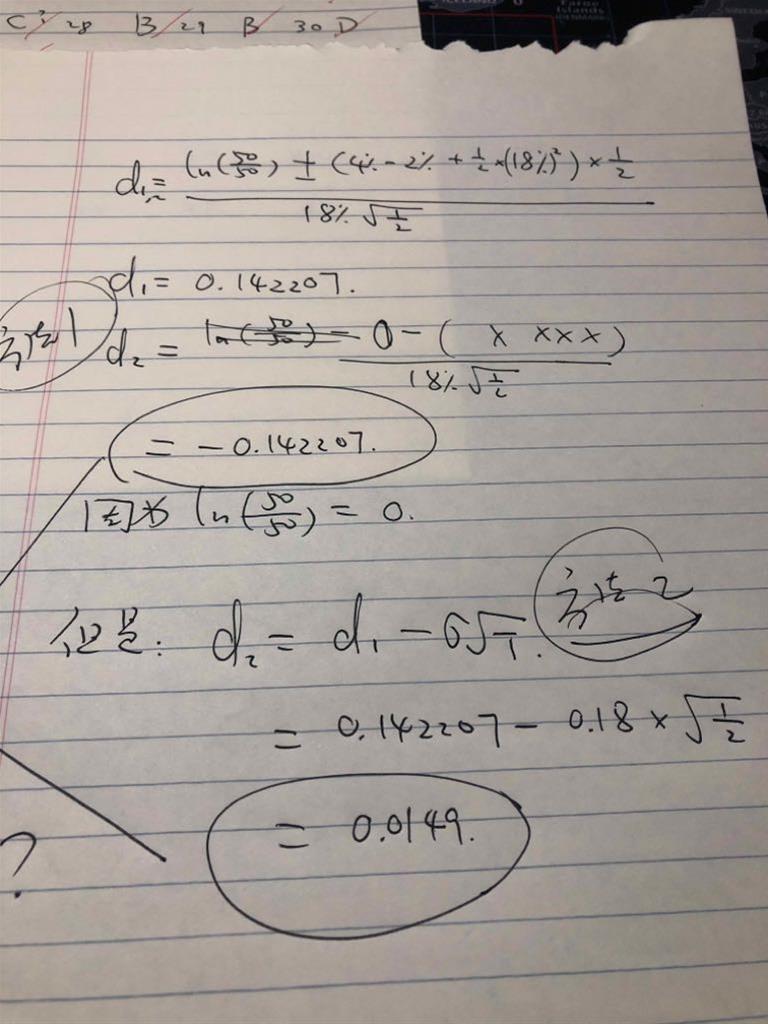 C 28 B 29 B 30 D
d₁ = (ln(50/50) ± (4% - 2% + 1/2 × (18%)²) × 1/2) / (18% √(1/2))
d₁ = 0.142207.
方法1
d₂ = (ln(50/50) - 0 - ( x xxx )) / (18% √(1/2))
= - 0.142207.
因为 ln(50/50) = 0.
方法2
但是: d₂ = d₁ - σ√T.
= 0.142207 - 0.18 × √(1/2)
= 0.0149.
?